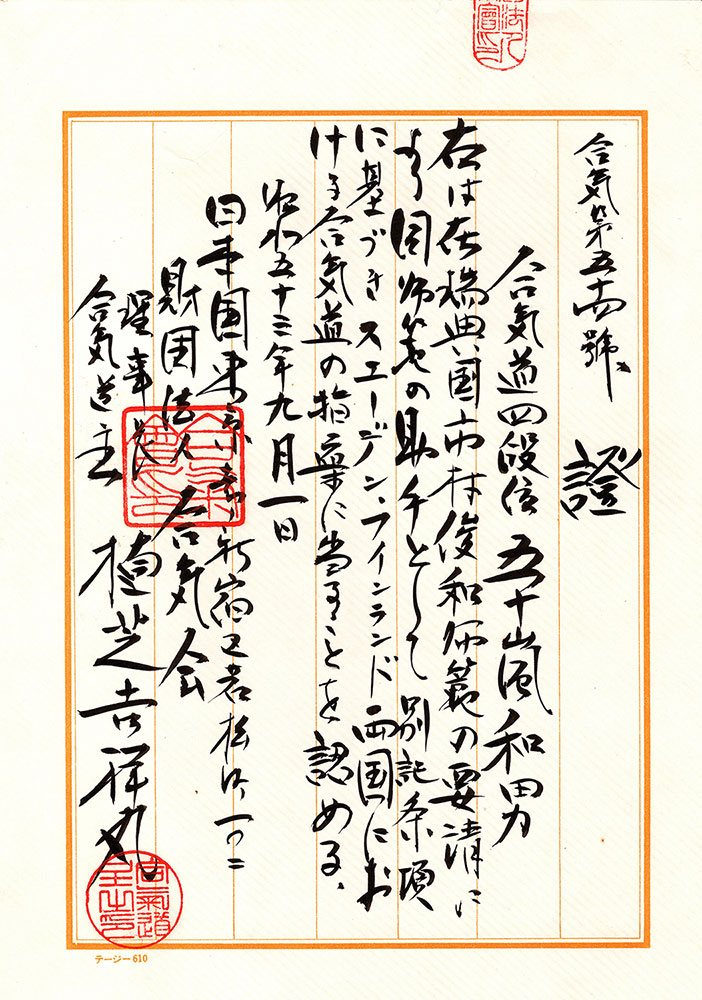 合気第五十四號
證
合気道四段位 五十嵐和男
右は在瑞典国市村俊和師範の要請に
より同師範の助手として別記条項
に基づきスエーデン、フィンランド両国にお
ける合気道の指導に当ることを認める、
昭和五十三年九月一日
日本国東京都新宿区若松町一〇二
財団法人 合気会
理事長
合気道主 植芝吉祥丸
テージー610